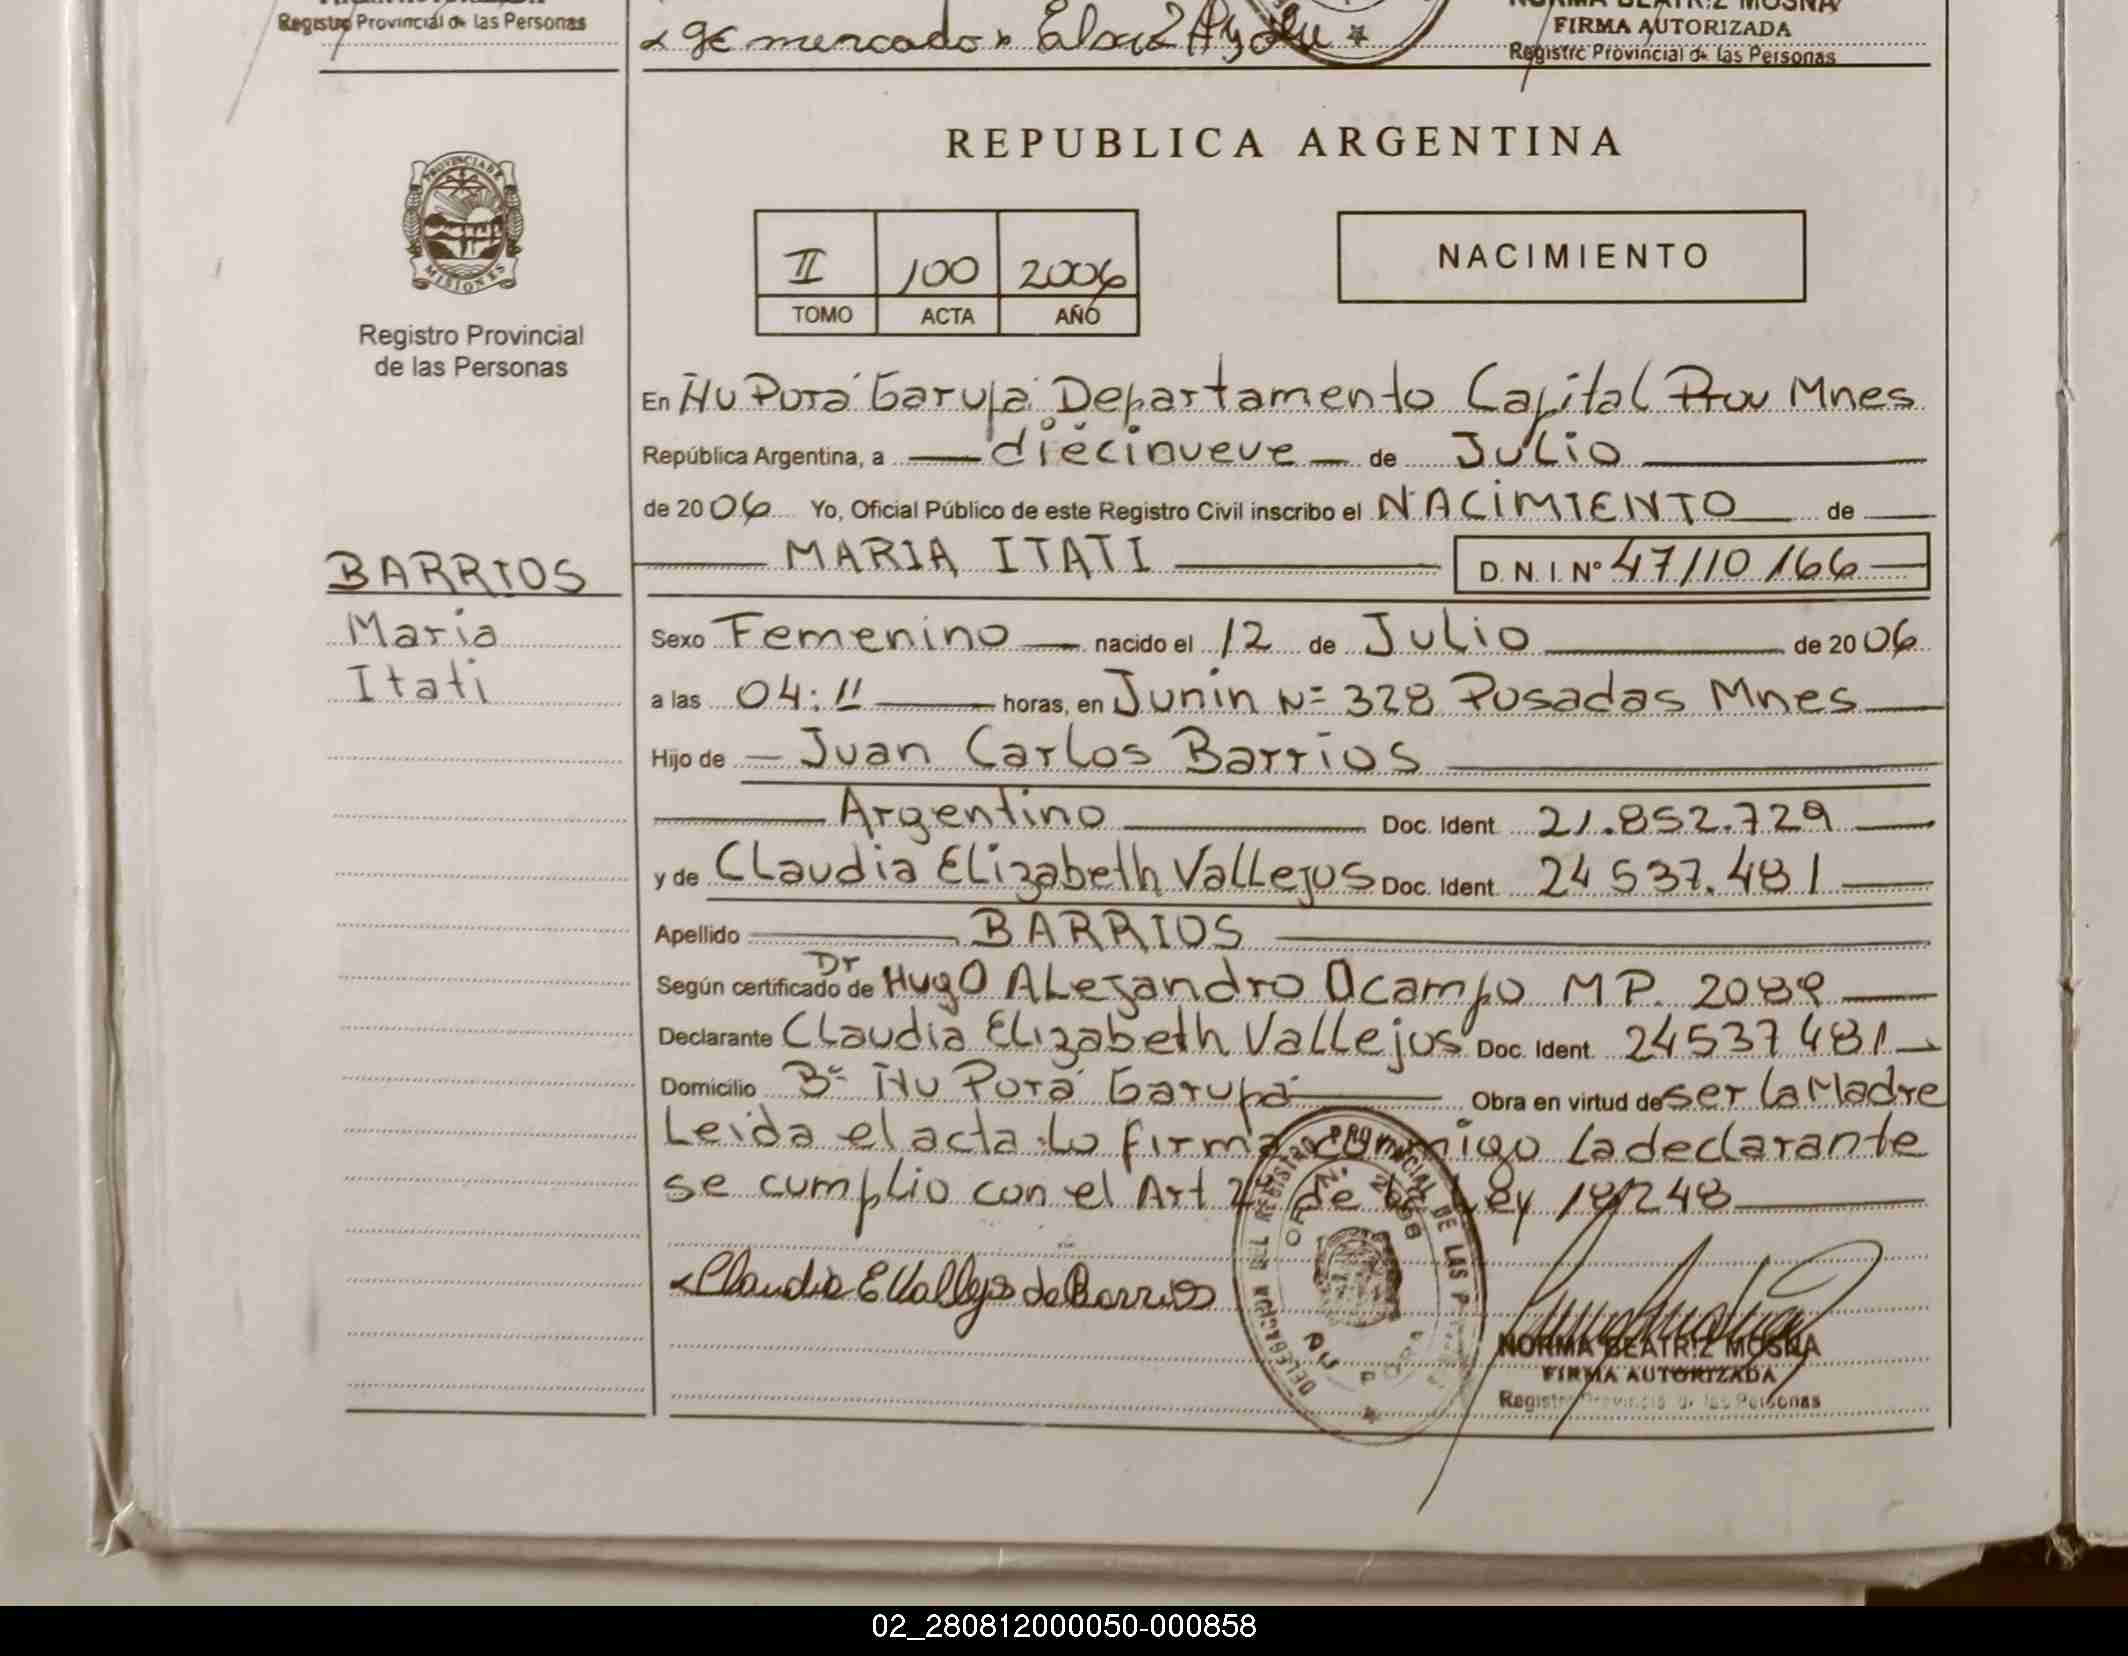 Registro Provincial de las Personas
NORMA BEATRIZ MOSNA
FIRMA AUTORIZADA
Registro Provincial de las Personas
REPUBLICA ARGENTINA
PROVINCIA DE
MISIONES
Registro Provincial
de las Personas
II 100 2006
TOMO ACTA AÑO
NACIMIENTO
En Ñu Porá Garupá Departamento Capital Prov Mnes
República Argentina, a diecinueve de Julio
de 2006 Yo, Oficial Público de este Registro Civil inscribo el NACIMIENTO de
MARIA ITATI D.N.I. Nº 47/110/166
BARRIOS
Maria
Itati
Sexo Femenino nacido el 12 de Julio de 2006
a las 04:11 horas, en Junin Nº 328 Posadas Mnes
Hijo de Juan Carlos Barrios
Argentino Doc. Ident. 21.852.729
y de Claudia Elizabeth Vallejos Doc. Ident. 24 537.481
Apellido BARRIOS
Según certificado de Dr Hugo Alejandro Ocampo MP. 2089
Declarante Claudia Elizabeth Vallejos Doc. Ident. 24537481
Domicilio Bº Ñu Porá Garupá Obra en virtud de ser la Madre
Leida el acta lo firma conmigo la declarante
se cumplio con el Art 2º de la Ley 18248
Claudia E Vallejos de Barrios
DELEGACION DEL REGISTRO PROVINCIAL DE LAS P
NORMA BEATRIZ MOSNA
FIRMA AUTORIZADA
Registro Provincial de las Personas
02_280812000050-000858